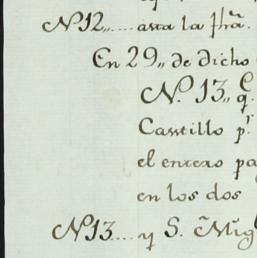 Nº 12,,.... asta la fhã.
En 29,, de dicho
Nº. 13,,
Castillo pr.
el entero pa
en los dos
Nº 13.... y S. Mig